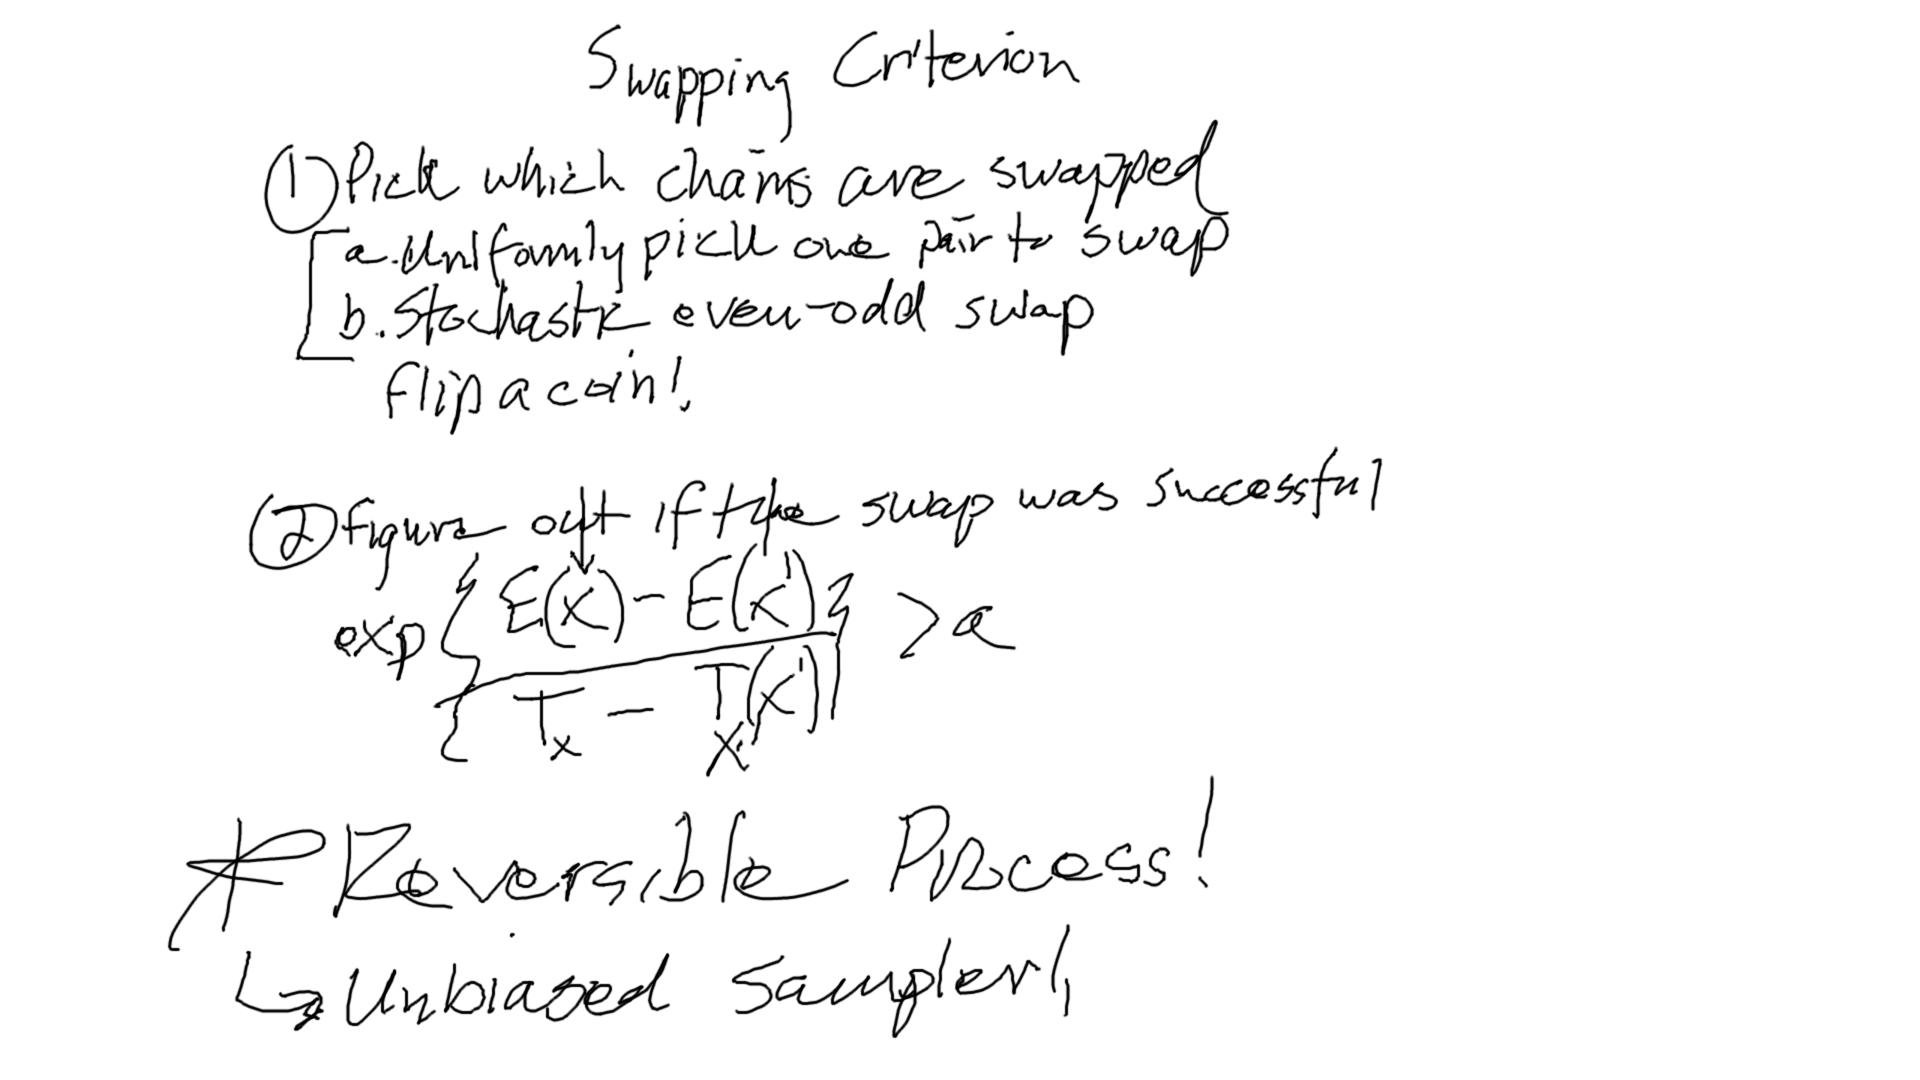 Swapping Criterion
① Pick which chains are swapped
a. Uniformly pick one pair to swap
b. Stochastic even-odd swap
flip a coin!
② figure out if the swap was successful
exp { E(x) - E(x') } > a
T_x - T_x'(x')
* Reversible Process!
↳ Unbiased Sampler!